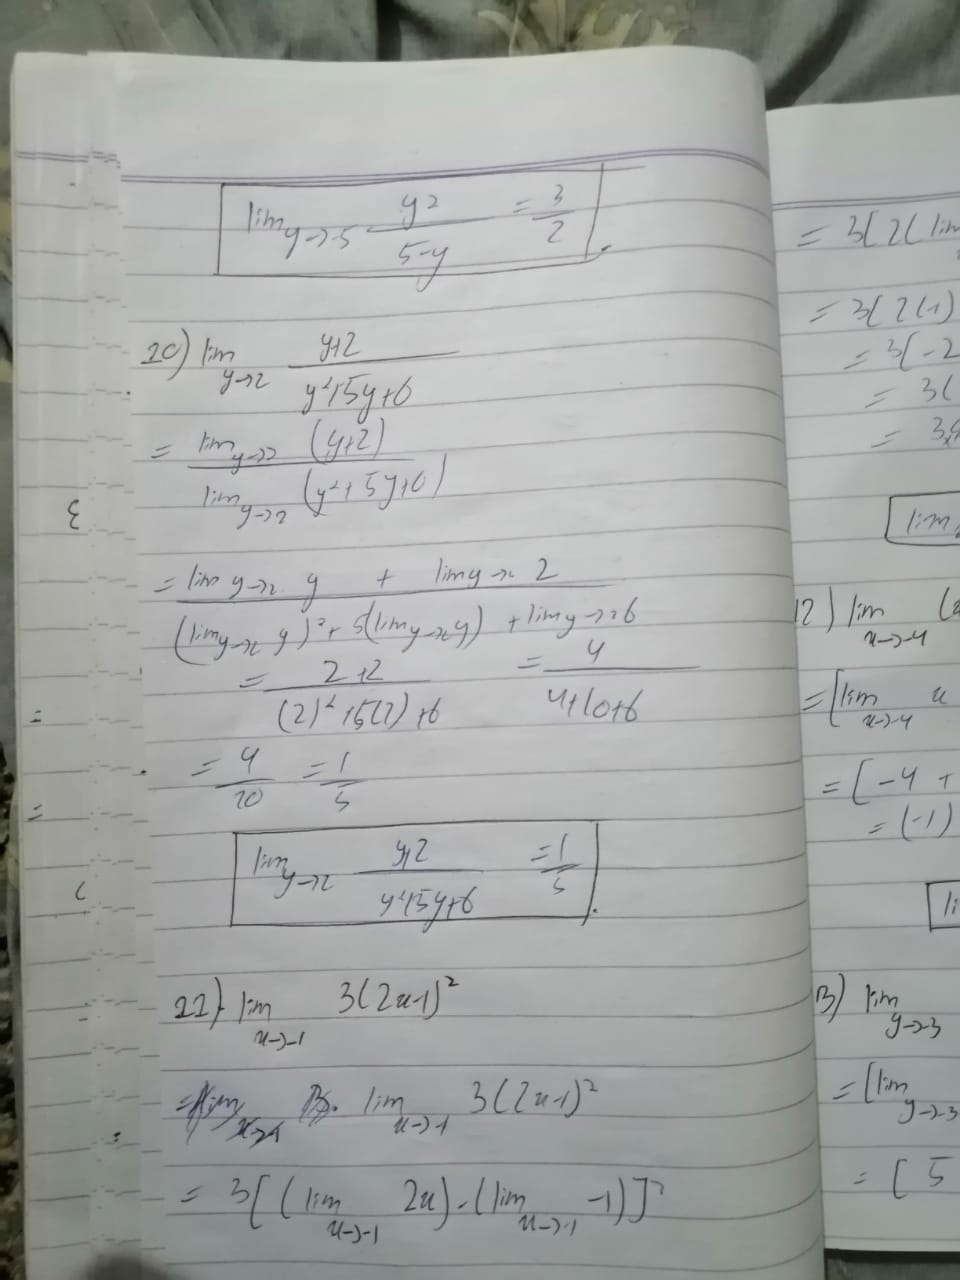 lim y→-5 y² / 5-y = 3/2.
20) lim y→2 y+2 / y²+5y+6
= lim y→2 (y+2) / lim y→2 (y²+5y+6)
= lim y→2 y + lim y→2 2 / (lim y→2 y)² + 5(lim y→2 y) + lim y→2 6
= 2+2 / (2)²+5(2)+6 = 4 / 4+10+6
= 4/20 = 1/5
lim y→2 y+2 / y²+5y+6 = 1/5.
22) lim x→-1 3(2x-1)²
= lim x→-1 3(2x-1)²
= 3[(lim x→-1 2x) - (lim x→-1 -1)]²
= 3[2(lim
= 3(2(-1)
= 3(-2
= 3(
= 3
lim
12) lim x→-4
= [lim x→-4 x
= [-4 +
= (-1)
li
13) lim y→-3
= [lim y→-3
= [5